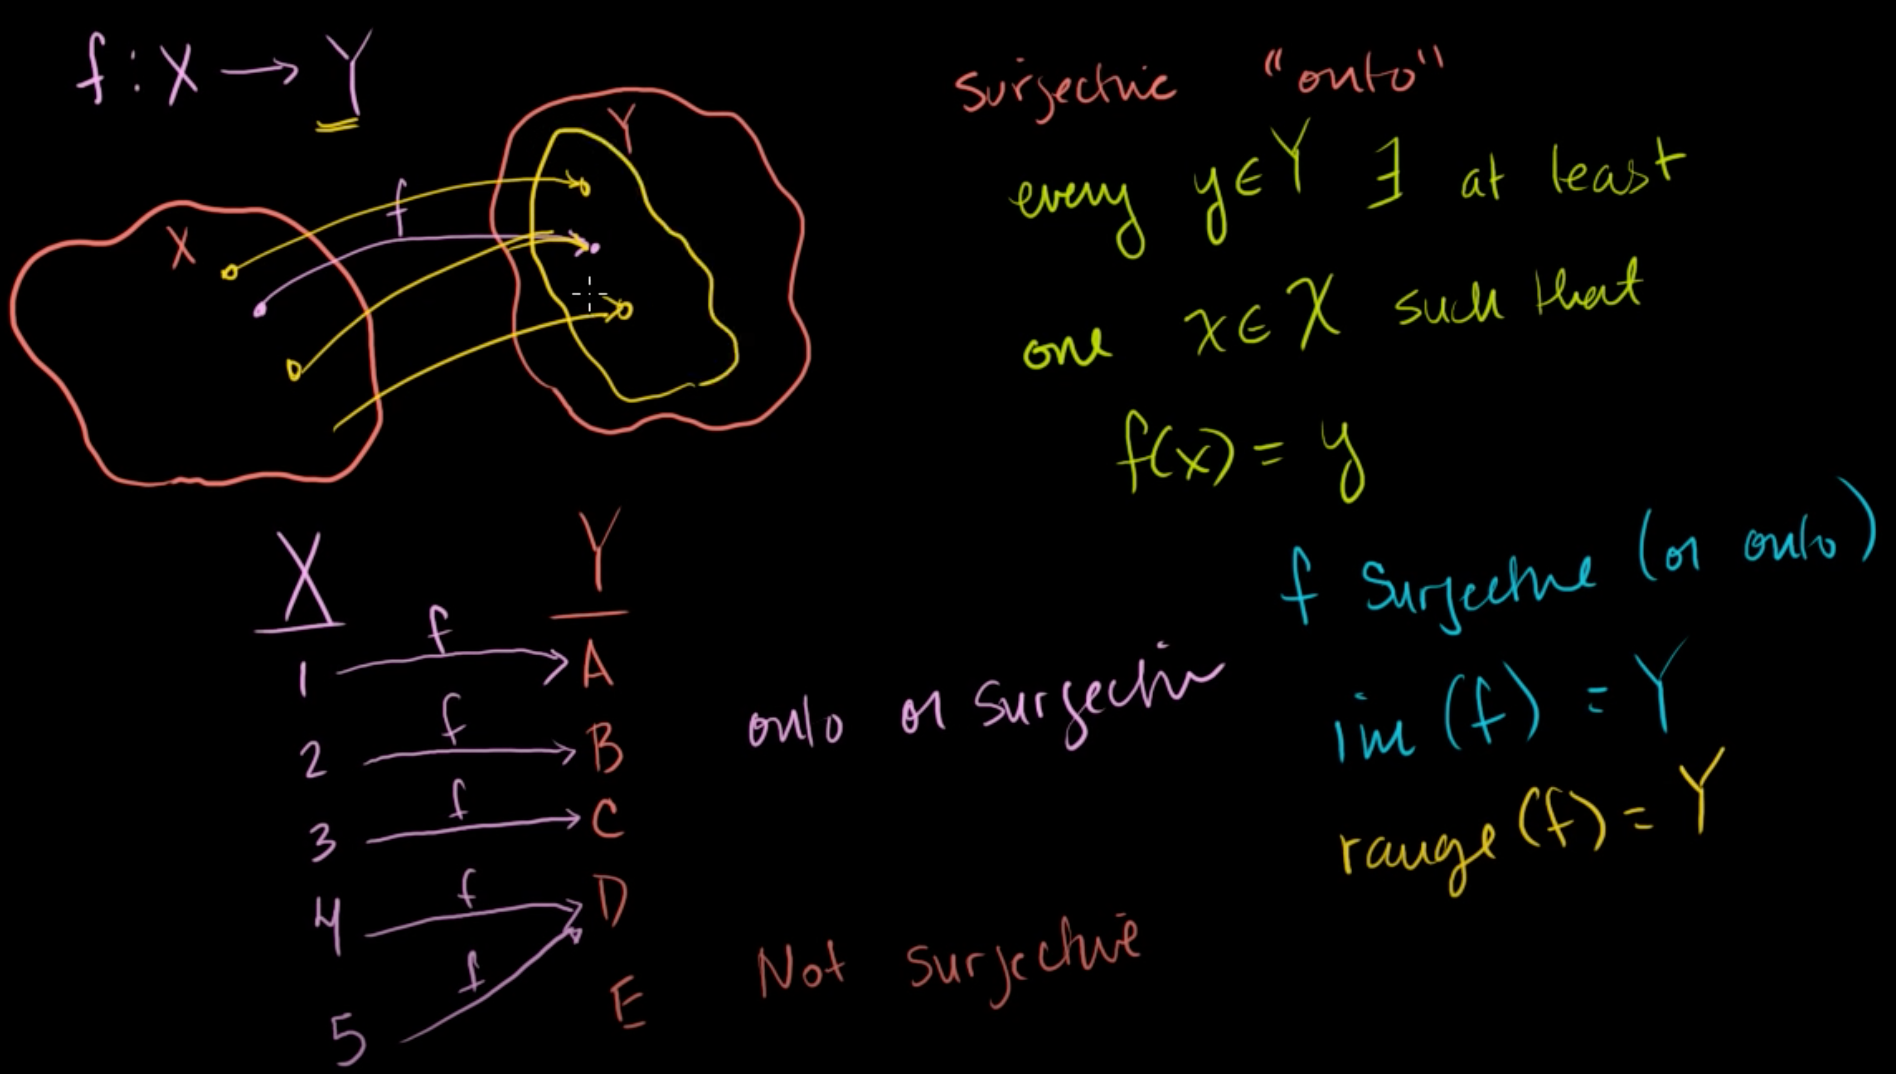 f : X → Y
X
f
Y
surjective "onto"
every y ∈ Y ∃ at least
one x ∈ X such that
f(x) = y
f Surjective (or onto)
im (f) = Y
range (f) = Y
X Y
1 f A
2 f B
3 f C
4 f D
5 f E
onto or surjective
Not surjective